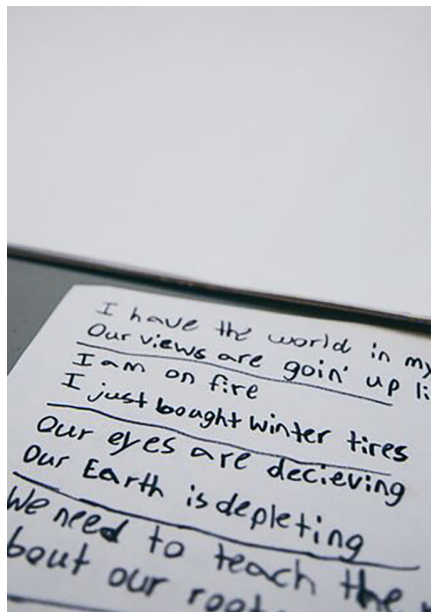 I have the world in my
Our views are goin' up li
I am on fire
I just bought winter tires
Our eyes are decieving
Our Earth is depleting
We need to teach the
bout our root